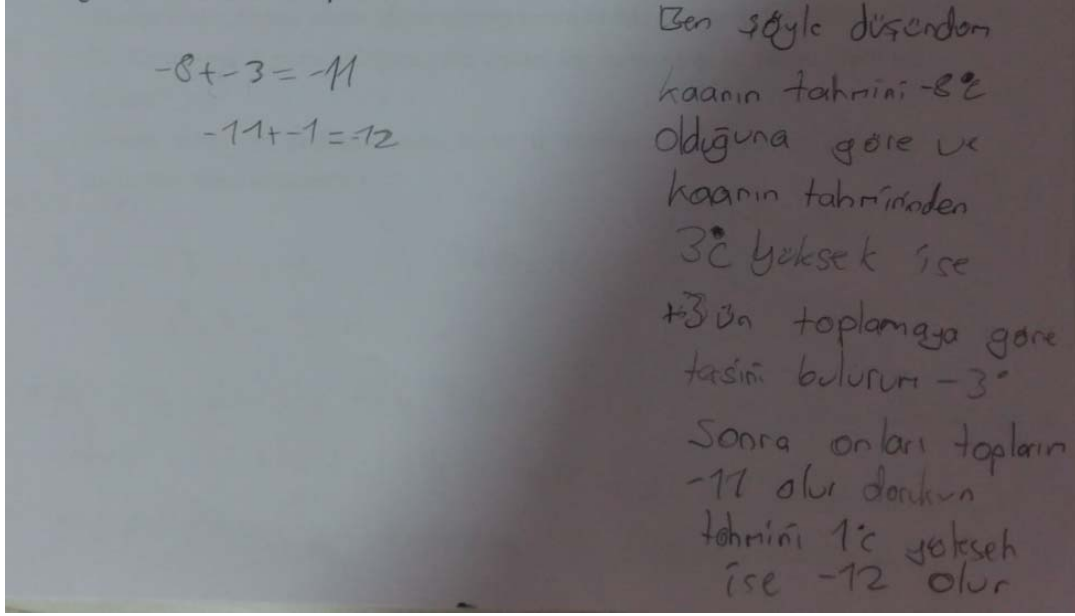 -8+-3=-11
-11+-1=-12
Ben şöyle düşündüm
kaanın tahmini -8°C
olduğuna göre ve
kaanın tahmininden
3°C yüksek ise
+3 ün toplamaya göre
tersini bulurum -3°
Sonra onları toplarım
-11 olur
tahmini 1°C yüksek
ise -12 olur